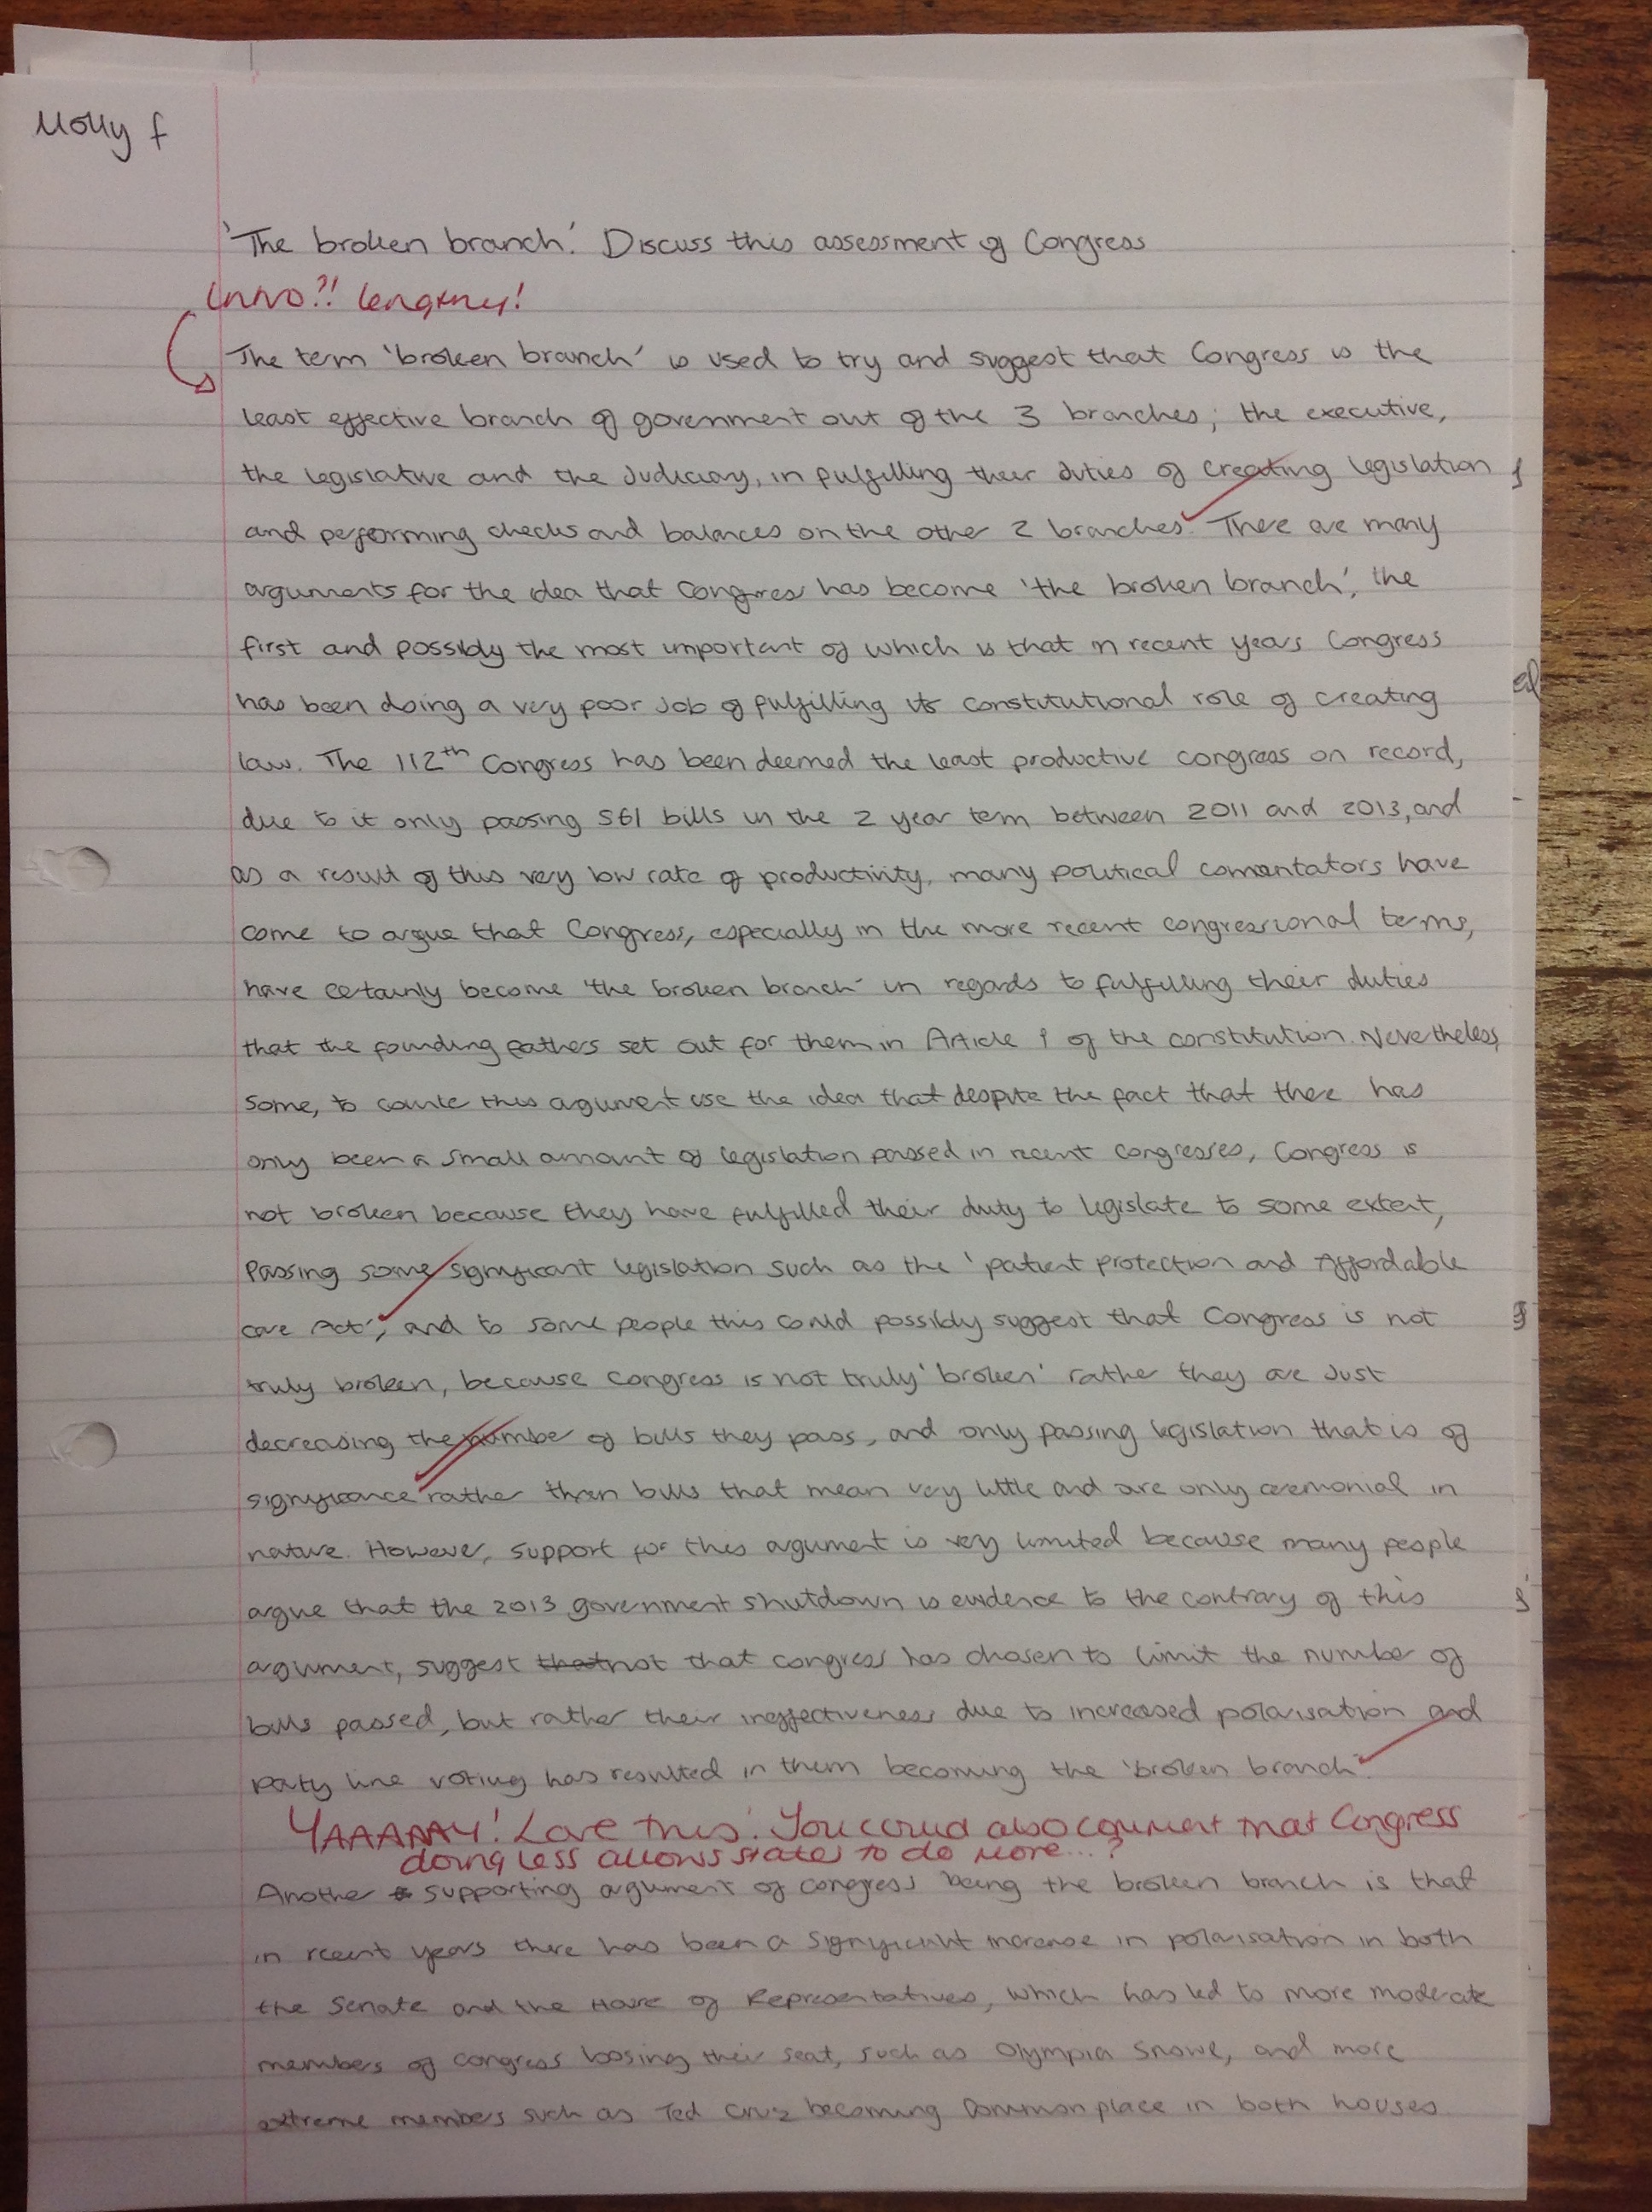 Molly f
'The broken branch'. Discuss this assessment of Congress
Intro?! Lengthy!
The term 'broken branch' is used to try and suggest that Congress is the
least effective branch of government out of the 3 branches; the executive,
the legislative and the Judiciary, in fulfilling their duties of creating legislation
and performing checks and balances on the other 2 branches. There are many
arguments for the idea that Congress has become 'the broken branch', the
first and possibly the most important of which is that in recent years Congress
has been doing a very poor job of fulfilling its constitutional role of creating
law. The 112th Congress has been deemed the least productive congress on record,
due to it only passing 561 bills in the 2 year term between 2011 and 2013, and
as a result of this very low rate of productivity, many political comentators have
come to argue that Congress, especially in the more recent congressional terms,
have certainly become 'the broken branch' in regards to fulfilling their duties
that the founding fathers set out for them in Article 1 of the constitution. Nevertheless,
some, to counter this argument use the idea that despite the fact that there has
only been a small amount of legislation passed in recent congresses, Congress is
not broken because they have fulfilled their duty to legislate to some extent,
passing some significant legislation such as the 'patient protection and Affordable
care Act', and to some people this could possibly suggest that Congress is not
truly broken, because congress is not truly 'broken' rather they are just
decreasing the number of bills they pass, and only passing legislation that is of
significance rather than bills that mean very little and are only ceremonial in
nature. However, support for this argument is very limited because many people
argue that the 2013 government shutdown is evidence to the contrary of this
argument, suggest that not that congress has chosen to limit the number of
bills passed, but rather their ineffectiveness due to increased polarisation and
party line voting has resulted in them becoming the 'broken branch'.
YAAAAAY! Love this! You could also comment that Congress
doing less allows states to do more...?
Another supporting argument of congress being the broken branch is that
in recent years there has been a significant increase in polarisation in both
the Senate and the House of Representatives, which has led to more moderate
members of congress loosing their seat, such as Olympia Snowe, and more
extreme members such as Ted Cruz becoming common place in both houses